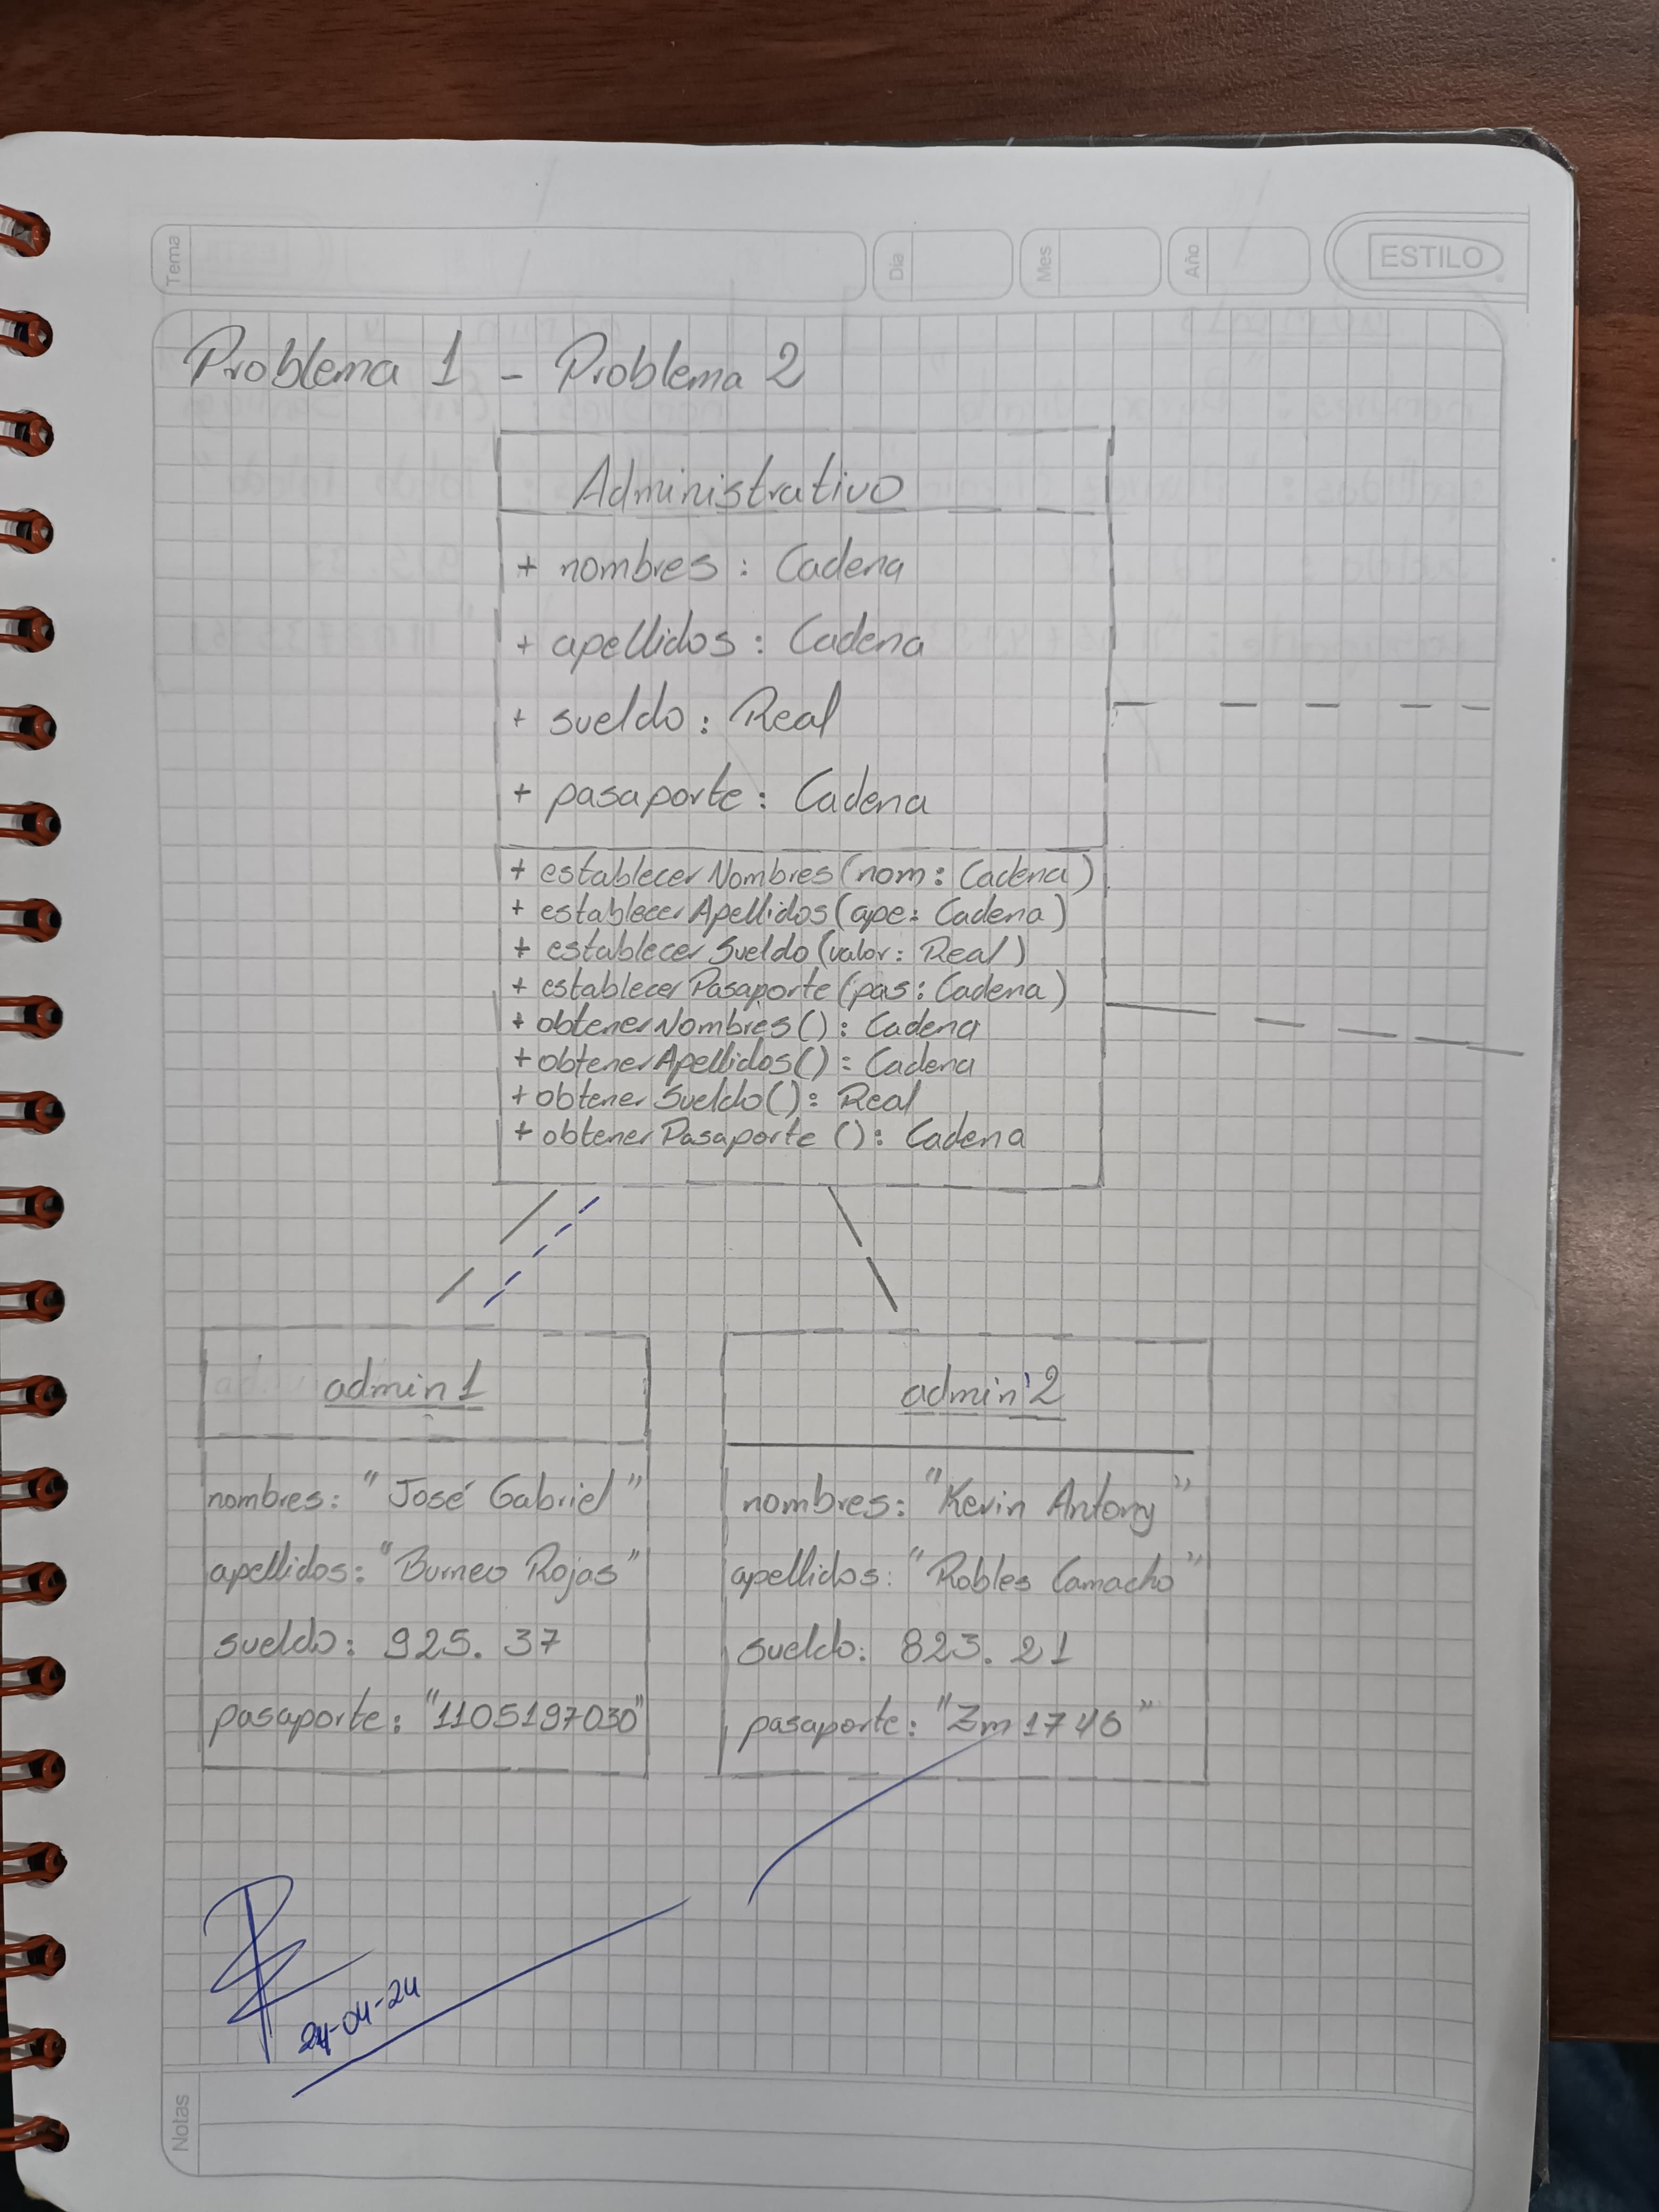 Tema
Día
Mes
Año
ESTILO
Problema 1 - Problema 2
Administrativo
+ nombres : Cadena
+ apellidos : Cadena
+ sueldo : Real
+ pasaporte : Cadena
+ establecerNombres(nom : Cadena)
+ establecerApellidos(ape : Cadena)
+ establecerSueldo(valor : Real)
+ establecerPasaporte(pas : Cadena)
+ obtenerNombres() : Cadena
+ obtenerApellidos() : Cadena
+ obtenerSueldo() : Real
+ obtenerPasaporte() : Cadena
admin1
nombres: "José Gabriel"
apellidos: "Burneo Rojas"
sueldo: 925.37
pasaporte: "1105197030"
admin2
nombres: "Kevin Antony"
apellidos: "Robles Camacho"
sueldo: 823.21
pasaporte: "Zm1746"
24-04-24
Notas